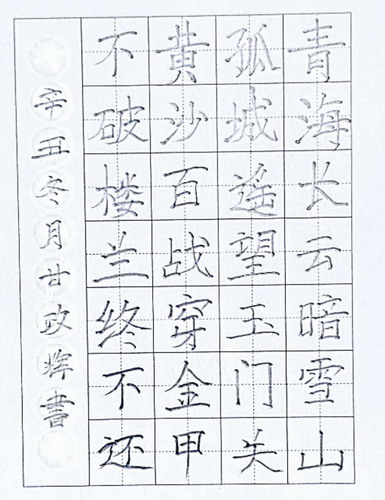 青海长云暗雪山
孤城遥望玉门关
黄沙百战穿金甲
不破楼兰终不还
辛丑冬月廿政晖書